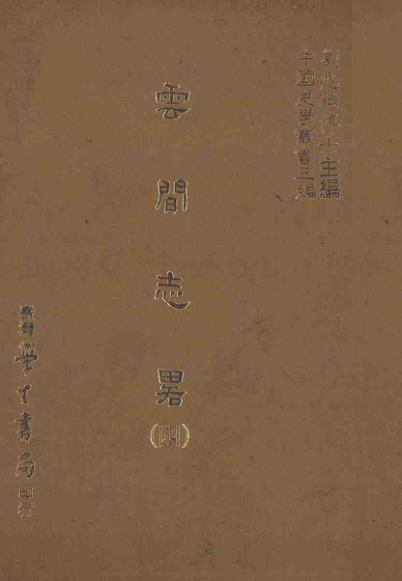 劉兆祐博士主編
中國史學叢書三編
雲間志畧
(四)
臺灣學生書局印行